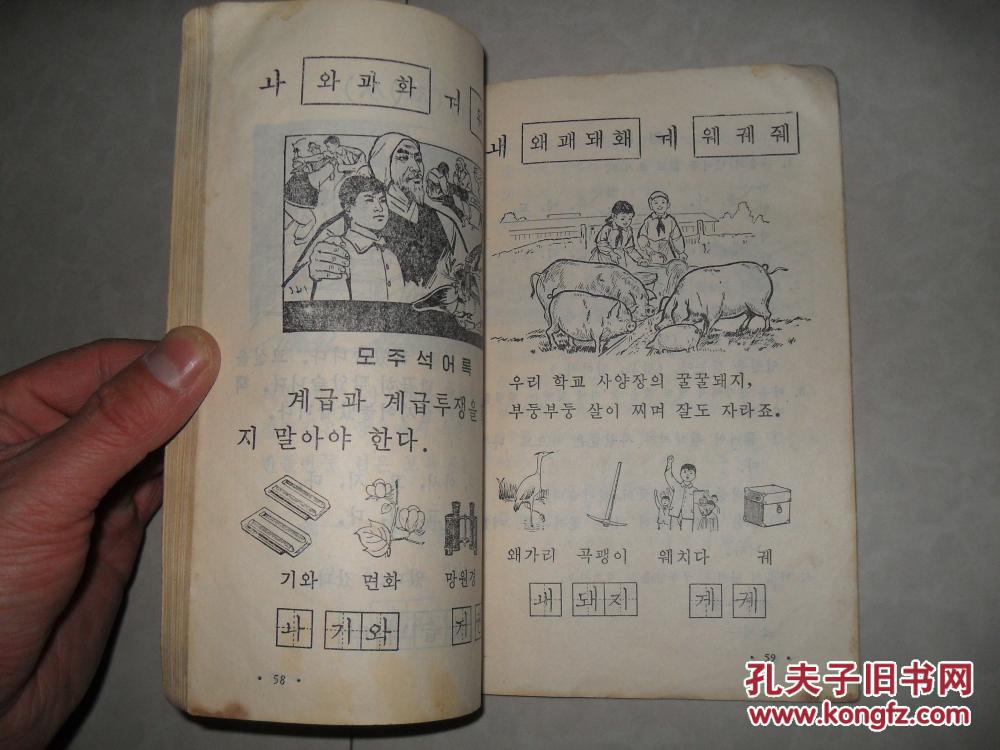 ㅘ 와 과 화 ㅝ
모주석어록
계급과 계급투쟁을
지 말아야 한다.
기와 면화 망원경
ㅘ 기 와 ㅝ
· 58 ·
ㅙ 왜 괘 돼 홰 ㅞ 웨 궤 줴
우리 학교 사양장의 꿀꿀돼지,
부둥부둥 살이 찌며 잘도 자라죠.
왜가리 곡괭이 웨치다 궤
ㅙ 돼 지 ㅞ 궤
· 59 ·
孔夫子旧书网
www.kongfz.com